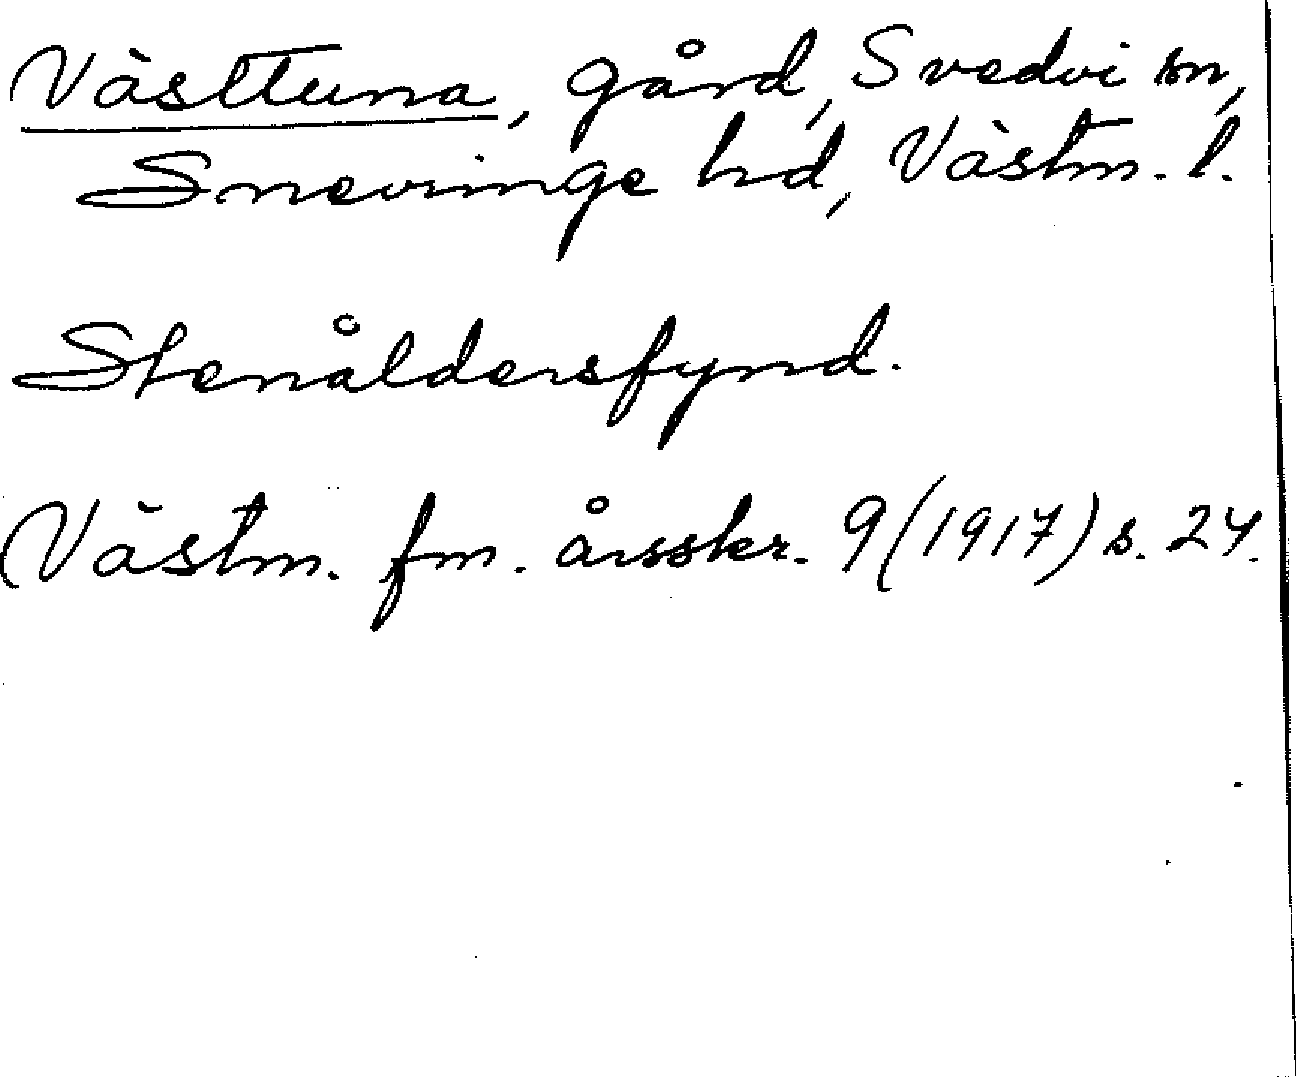 Västtuna, gård, Svedvi sn,
Snevringe hd, Västm. l.
Stenåldersfynd.
Västm. fm. årsskr. 9 (1917) s. 24.